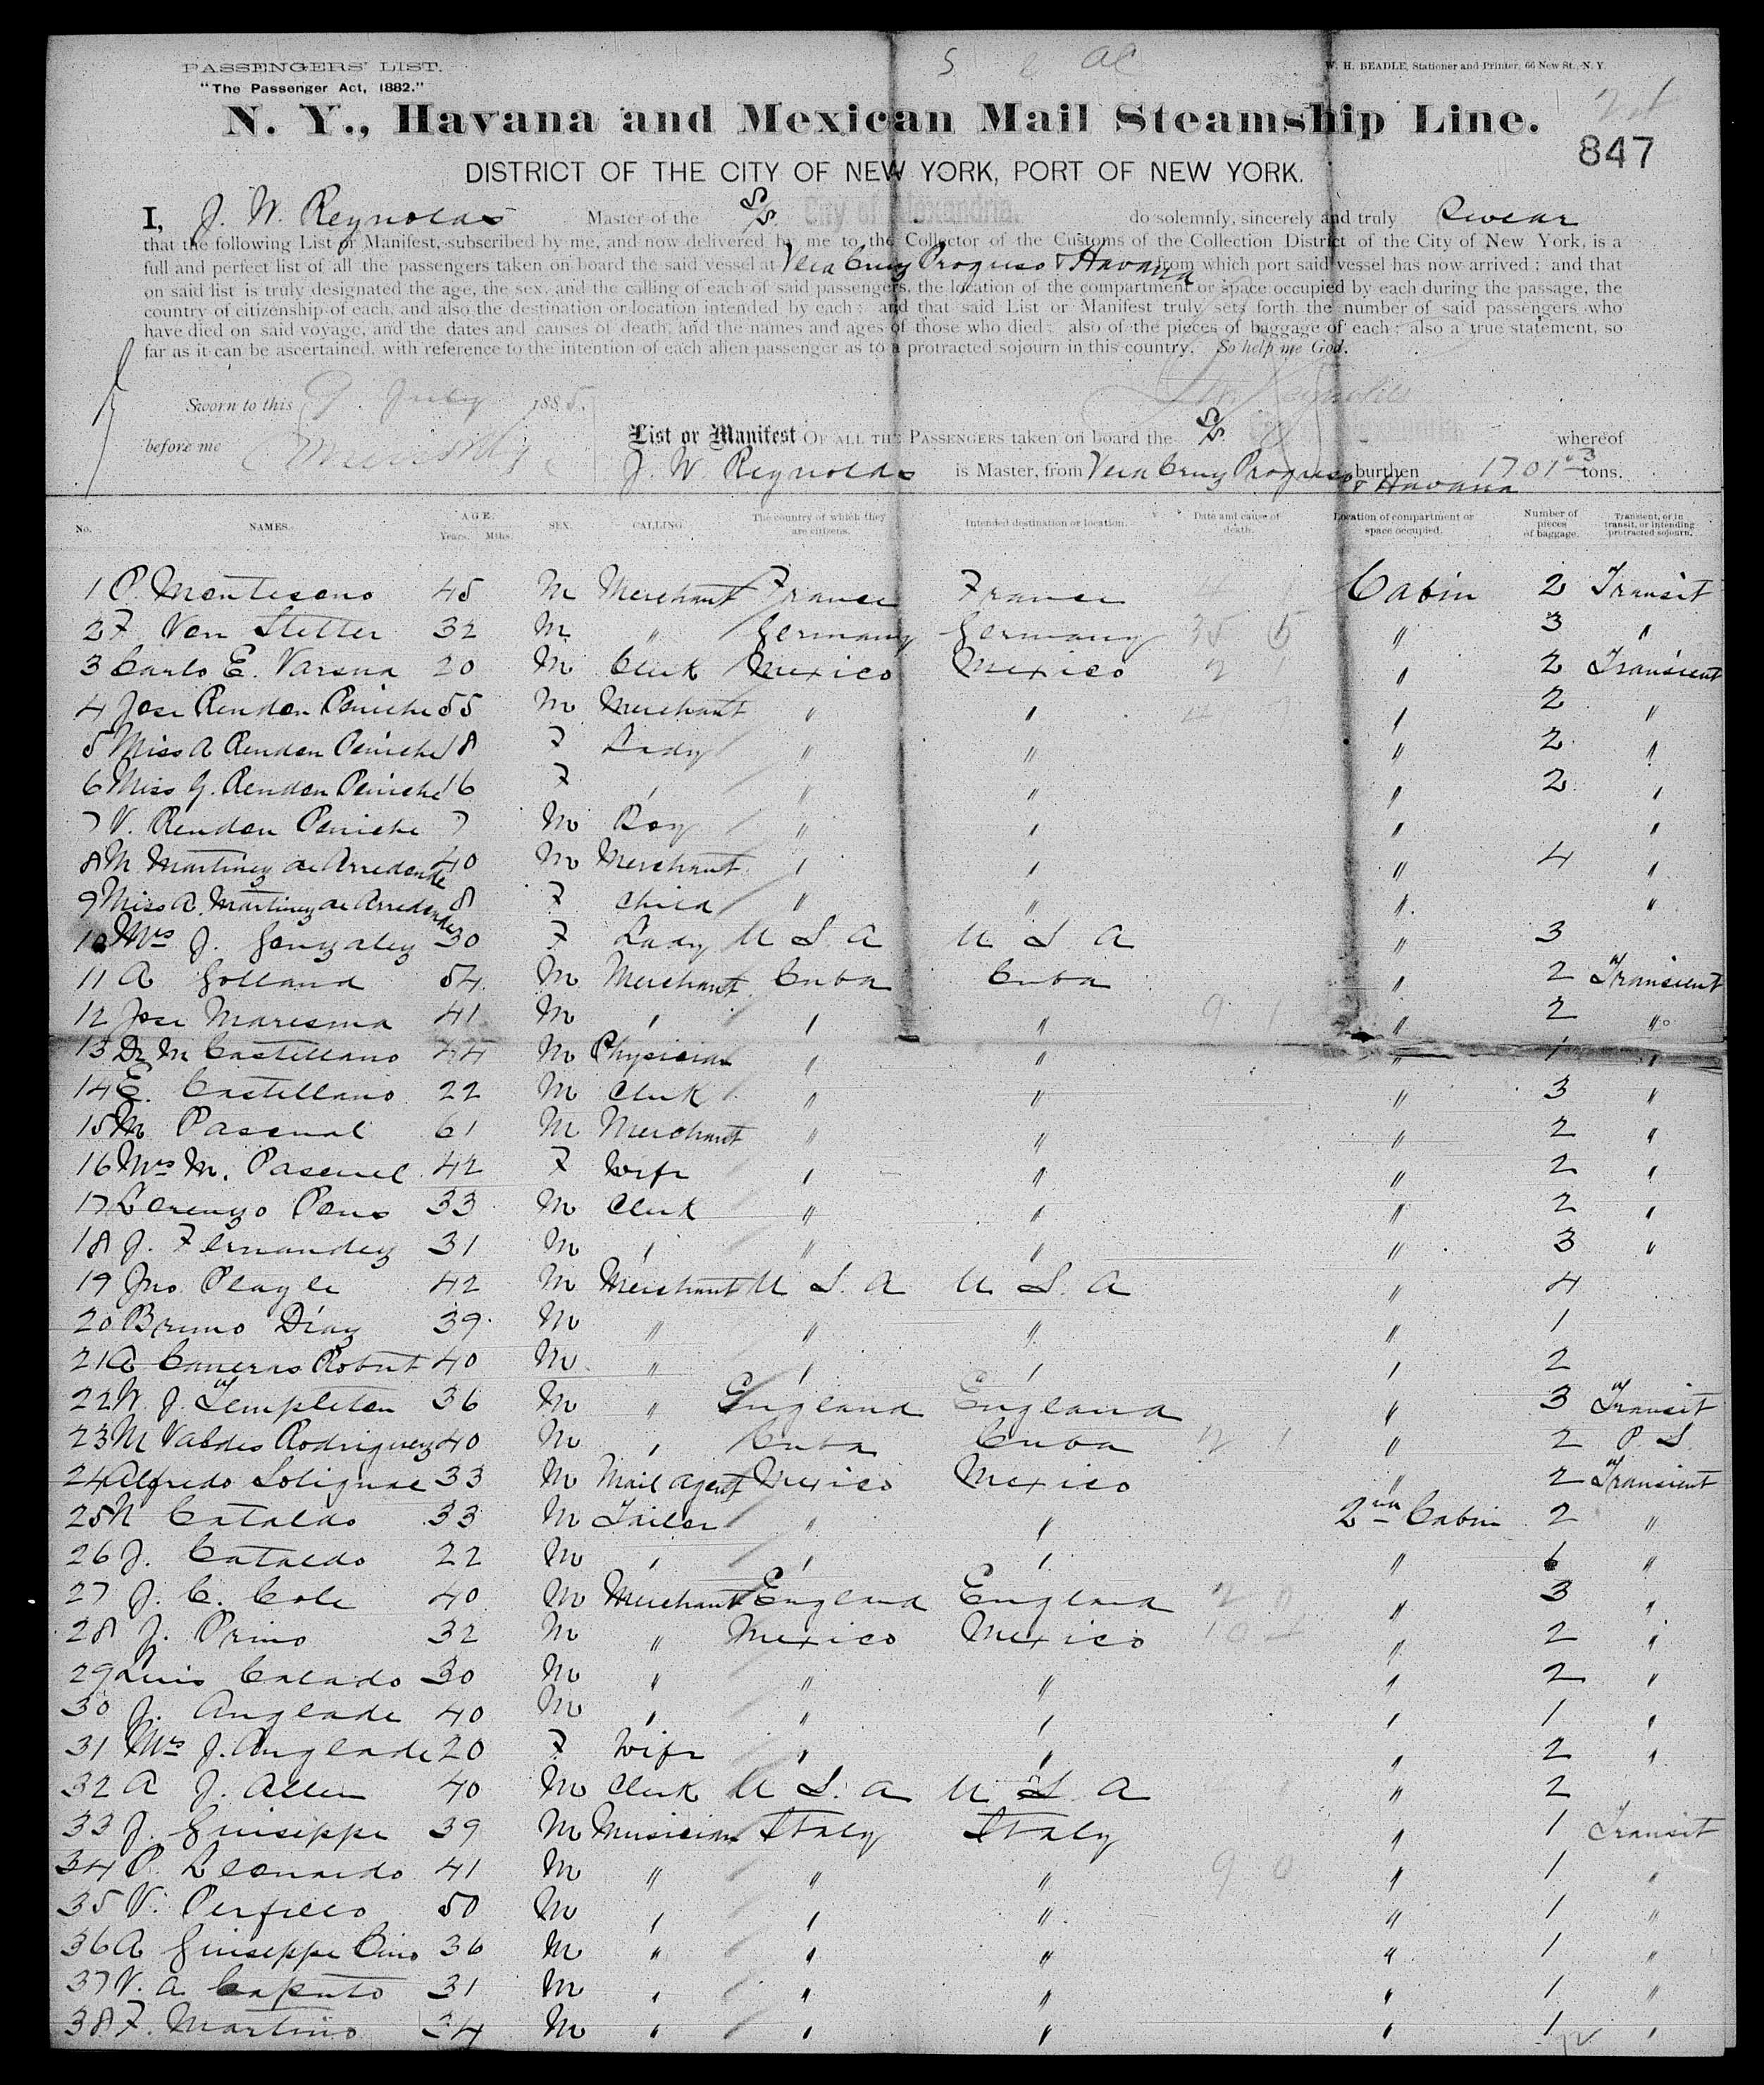 PASSENGERS' LIST.
"The Passenger Act, 1882."
W. H. BEADLE, Stationer and Printer, 66 New St., N. Y.
N. Y., Havana and Mexican Mail Steamship Line.
847
DISTRICT OF THE CITY OF NEW YORK, PORT OF NEW YORK.
I, J. W. Reynolds Master of the S/S. City of Alexandria. do solemnly, sincerely and truly Swear
that the following List or Manifest, subscribed by me, and now delivered by me to the Collector of the Customs of the Collection District of the City of New York, is a
full and perfect list of all the passengers taken on board the said vessel at Vera Cruz Progreso & Havana from which port said vessel has now arrived; and that
on said list is truly designated the age, the sex, and the calling of each of said passengers, the location of the compartment or space occupied by each during the passage, the
country of citizenship of each, and also the destination or location intended by each; and that said List or Manifest truly sets forth the number of said passengers who
have died on said voyage, and the dates and causes of death, and the names and ages of those who died; also of the pieces of baggage of each; also a true statement, so
far as it can be ascertained, with reference to the intention of each alien passenger as to a protracted sojourn in this country. So help me God.
Sworn to this 9 July 1885. J W Reynolds
before me
List or Manifest OF ALL THE PASSENGERS taken on board the S/S City of Alexandria whereof
J. W Reynolds is Master, from Vera Cruz Progreso & Havana burthen 1701 tons.
No. NAMES. AGE. Years. Mths. SEX. CALLING. The country of which they are citizens. Intended destination or location. Date and cause of death. Location of compartment or space occupied. Number of pieces of baggage. Transient, or in transit, or intending protracted sojourn.
1 P. Montesono 45 M Merchant France France Cabin 2 Transit
2 F Von Stetter 32 M " Germany Germany " 3 "
3 Carlo E. Varona 20 M Clerk Mexico Mexico " 2 Transient
4 Jose Rendon Peniche 55 M Merchant " " " 2 "
5 Miss A Rendon Peniche 18 F Lady " " " 2 "
6 Miss G. Rendon Peniche 16 F " " " " 2 "
7 V. Rendon Peniche 7 M Boy " " " "
8 M Martinez de Arredondo 40 M Merchant " " " 4 "
9 Miss A. Martinez de Arredondo 8 F Child " " " "
10 Mrs J. Gonzalez 30 F Lady U S. A U S A " 3
11 A Golland 54 M Merchant Cuba Cuba " 2 Transient
12 Jose Maresma 41 M " " " " 2 "
13 Dr M Castellano 44 M Physician " " " 1 "
14 E. Castellano 22 M Clerk " " " 3 "
15 M Pascual 61 M Merchant " " " 2 "
16 Mrs M. Pascual 42 F Wife " " " 2 "
17 Lorenzo Pons 33 M Clerk " " " 2 "
18 J. Fernandez 31 M " " " " 3 "
19 Jno Playle 42 M Merchant U S. A U S. A " 4
20 Bruno Diaz 39 M " " " " 1
21 A Robert 40 M " " " " 2
22 W. J. Templeton 36 M " England England " 3 Transit
23 M Valdes Rodriguez 40 M " Cuba Cuba " 2 P. S.
24 Alfredo Solignac 33 M Mail Agent Mexico Mexico " 2 Transient
25 N Cataldo 33 M Tailor " " 2nd Cabin 2 "
26 J. Cataldo 22 M " " " " 1 "
27 J. C. Cole 40 M Merchant England England " 3 "
28 J. Primo 32 M " Mexico Mexico " 2 "
29 Luis Calado 30 M " " " " 2 "
30 J. Anglade 40 M " " " " 1 "
31 Mrs J. Anglade 20 F Wife " " " 2 "
32 A J. Allen 40 M Clerk U S. A U S. A " 2
33 J. Guiseppe 39 M Musician Italy Italy " 1 Transit
34 P. Leonardo 41 M " " " " 1 "
35 V. Perfillo 50 M " " " " 1 "
36 A Guiseppe Cino 36 M " " " " 1 "
37 V. A Caputo 31 M " " " " 1 "
38 F. Martino 34 M " " " " 1 "